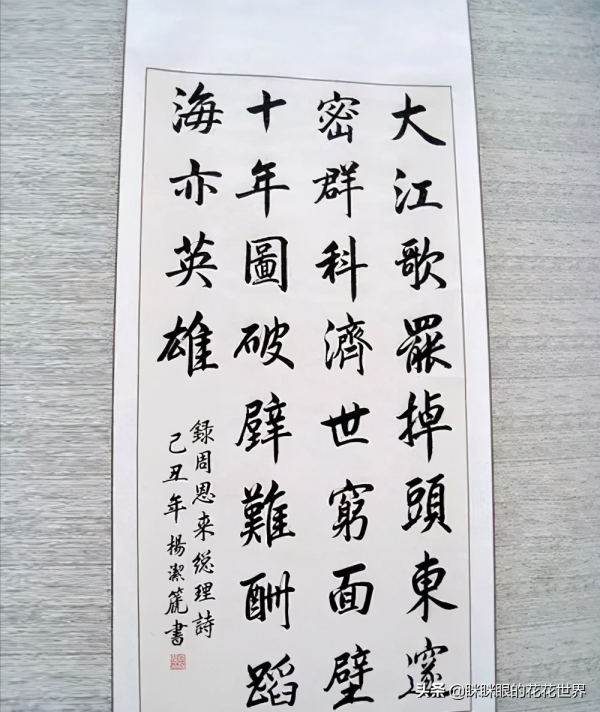 大江歌罷掉頭東邃
密群科濟世窮面壁
十年圖破壁難酬蹈
海亦英雄
録周恩来總理詩
己丑年楊潔篪書
头条 @眯眯眼的花花世界